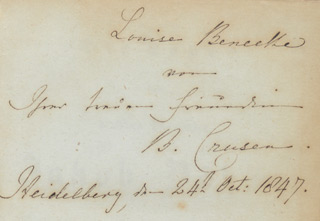 Louise Benecke
von
Ihrer treuen Freundin
B. Crusen.
Heidelberg, den 24t. Oct: 1847.